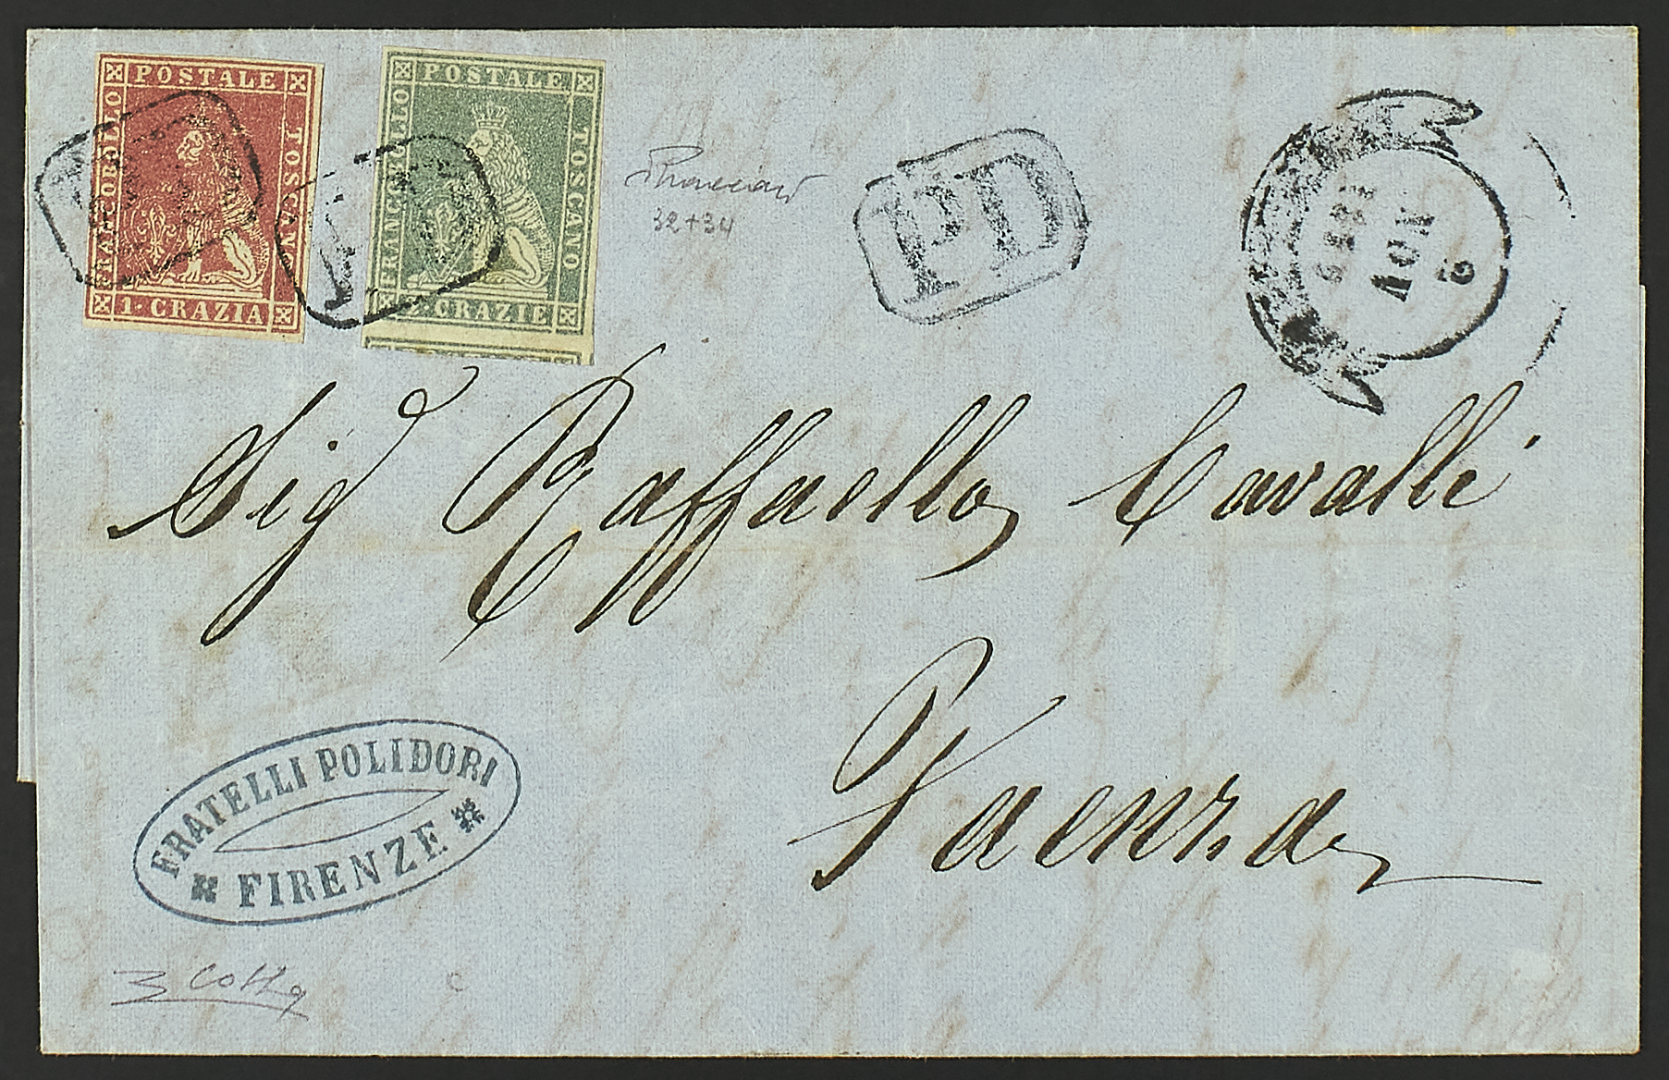 POSTALE
FRANCOBOLLO
TOSCANO
1 CRAZIA
POSTALE
FRANCOBOLLO
TOSCANO
2 CRAZIE
32+34
PD
PD
PD
Sig Raffaello Cavalli
Faenza
FRATELLI POLIDORI
FIRENZE